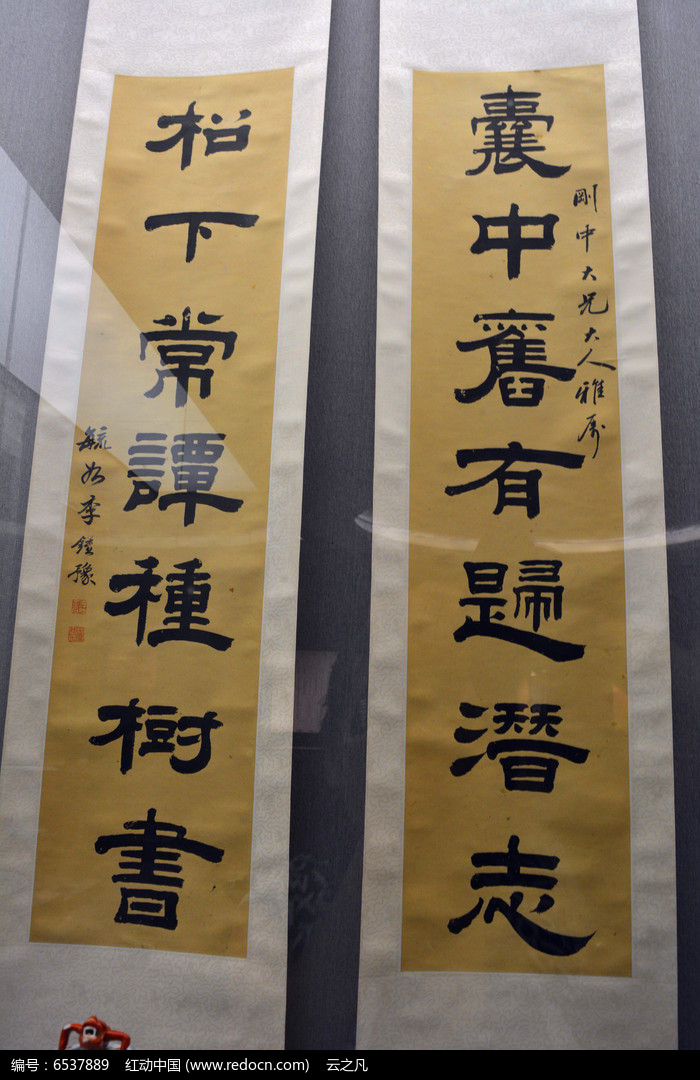 囊中舊有歸潛志
剛中大兄大人雅属
柗下常譚種樹書
毓如李鍾豫
编号：6537889 红动中国 (www.redocn.com) 云之凡